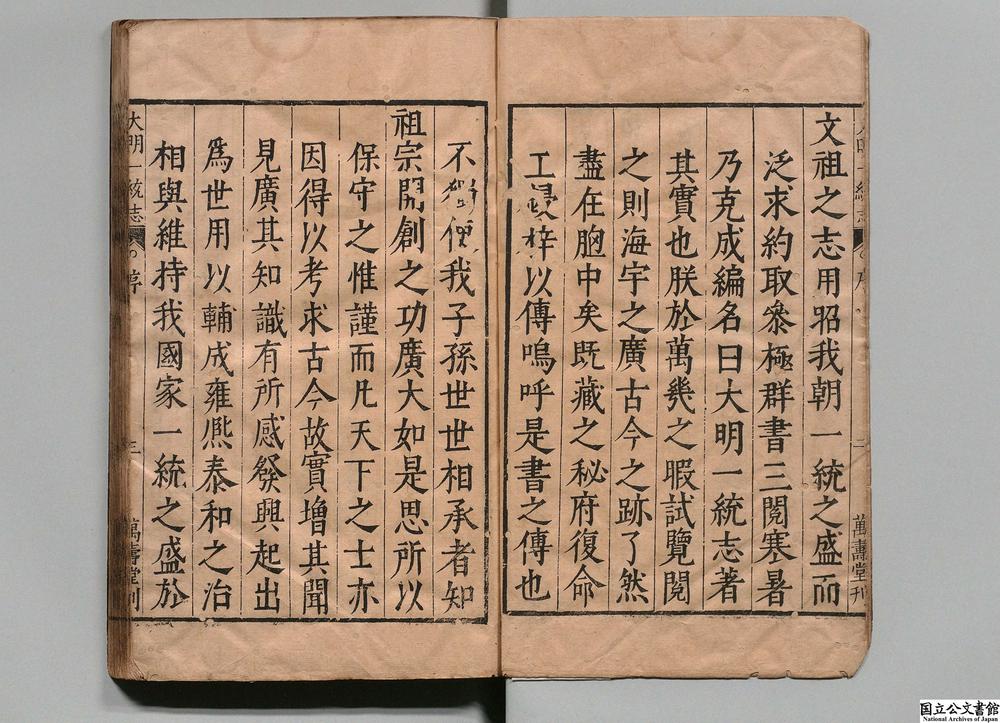 文祖之志用昭我朝一統之盛而
泛求約取參極群書三閱寒暑
乃克成編名曰大明一統志著
其實也朕於萬幾之暇試覽閱
之則海宇之廣古今之跡了然
盡在胸中矣既藏之秘府復命
工鋟梓以傳嗚呼是書之傳也
不獨使我子孫世世相承者知
祖宗開創之功廣大如是思所以
保守之惟謹而凡天下之士亦
因得以考求古今故實增其聞
見廣其知識有所感發興起出
爲世用以輔成雍熈泰和之治
相與維持我國家一統之盛於
大明一統志 序 二 萬壽堂刊
大明一統志 序 三 萬壽堂刊
国立公文書館
National Archives of Japan